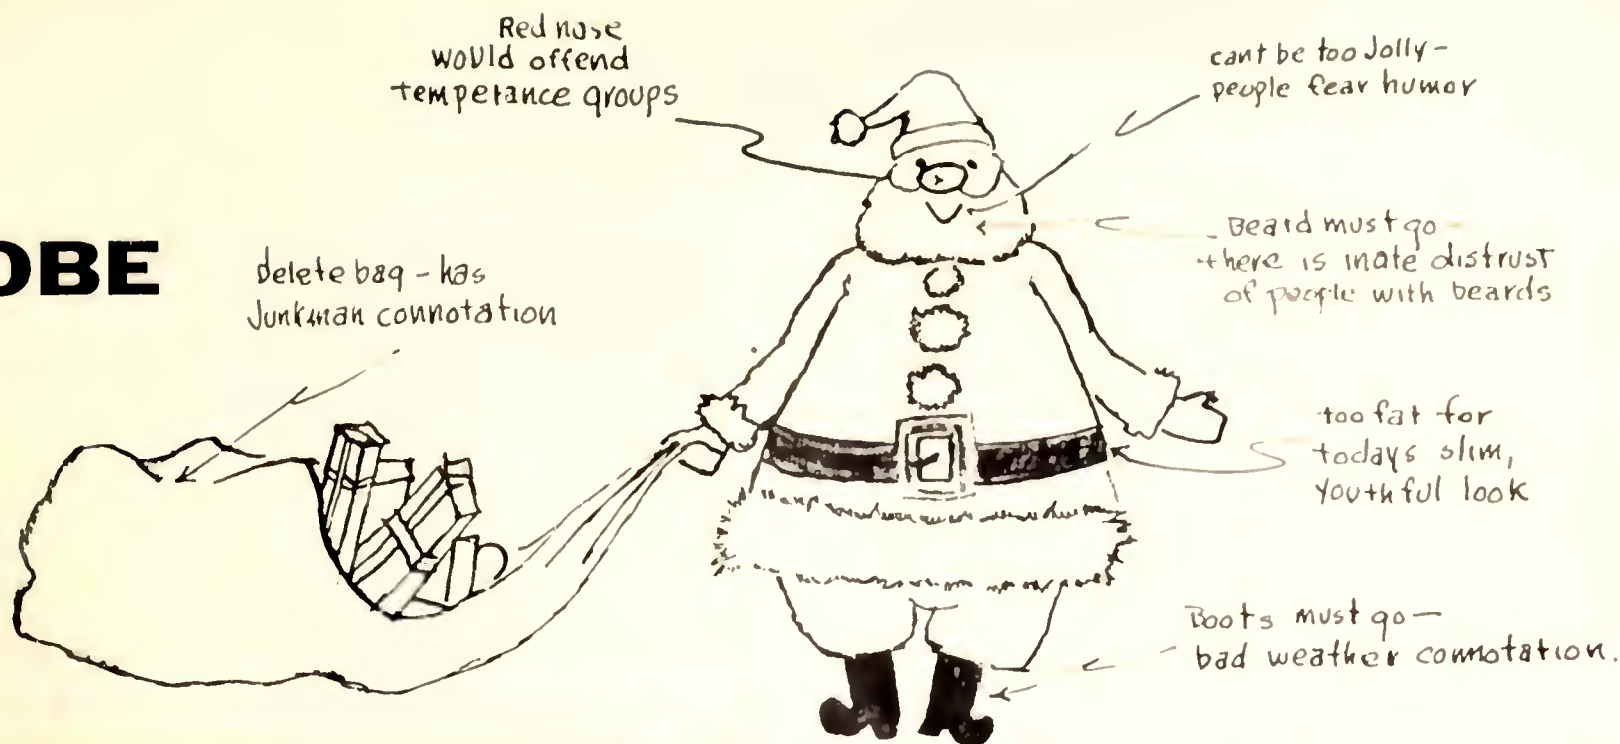 Red nose
would offend
temperance groups
cant be too Jolly-
people fear humor
OBE
delete bag - has
Junkman connotation
Beard must go -
there is inate distrust
of people with beards
too fat for
todays slim,
youthful look
Boots must go-
bad weather connotation.